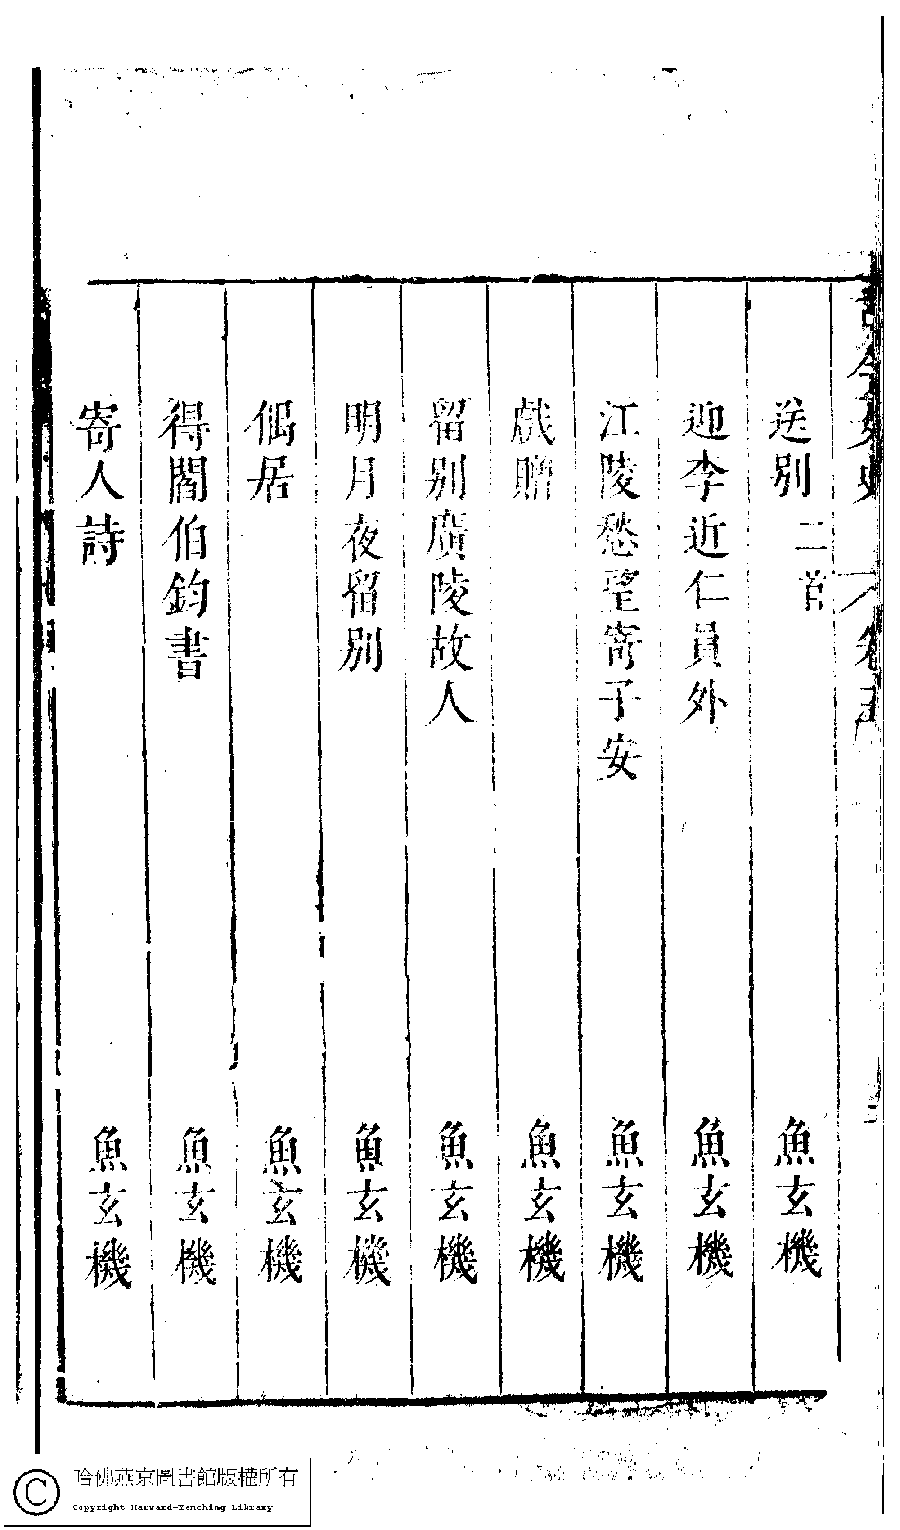 古今女史 卷五
送別 二首 魚玄機
迎李近仁員外 魚玄機
江陵愁望寄子安 魚玄機
戲贈 魚玄機
留別廣陵故人 魚玄機
明月夜留別 魚玄機
偶居 魚玄機
得閻伯鈞書 魚玄機
寄人詩 魚玄機
哈佛燕京圖書館版權所有
Copyright Harvard-Yenching Library